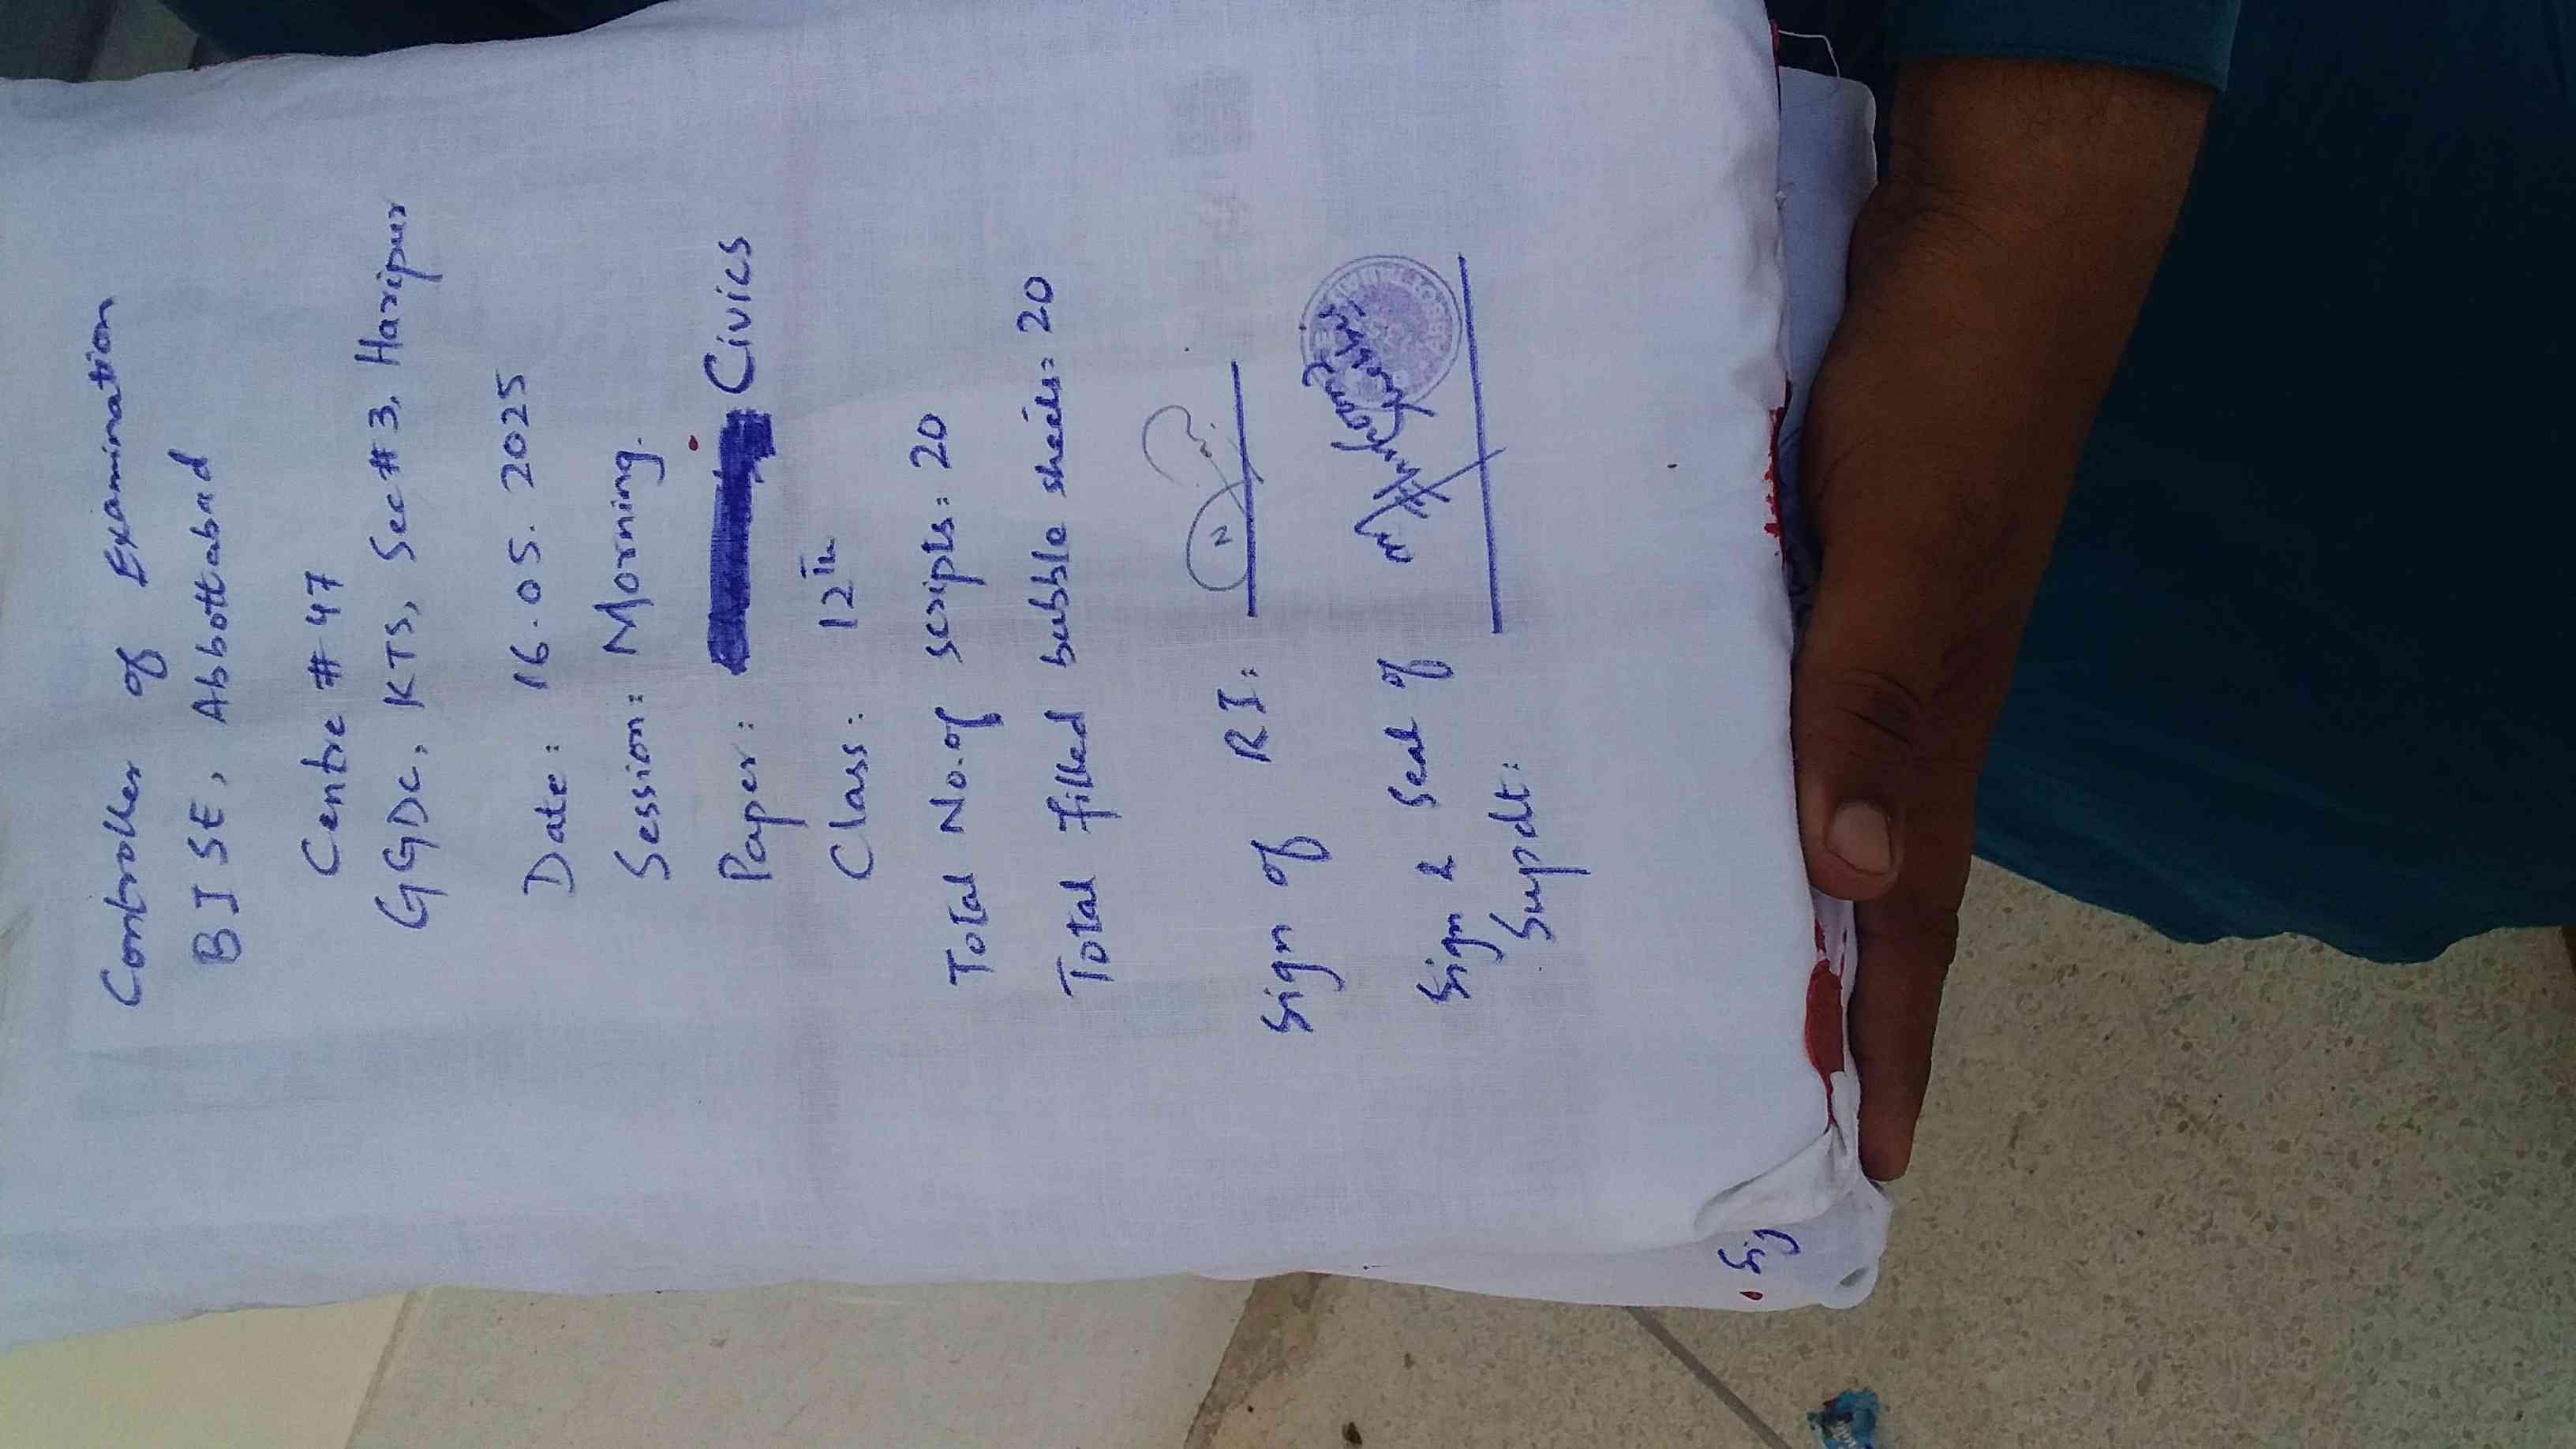 Controller of Examination
BISE, Abbottabad
Centre # 47
GGDC, KTS, Sec # 3, Haripur
Date: 16.05.2025
Session: Morning.
Paper: Civics
Class: 12th
Total No. of scripts: 20
Total filled bubble sheets: 20
Sign of RI:
Sign & Seal of
Supdt:
Sig